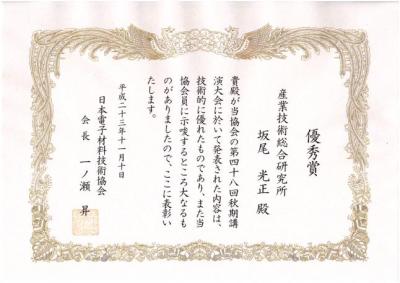 優秀賞
産業技術総合研究所
坂尾 光正 殿
貴殿が当協会の第四十八回秋期講
演大会に於いて発表された内容は、
技術的に優れたものであり、また当
協会員に示唆するところ大なるも
のがありましたので、ここに表彰い
たします。
平成二十三年十一月十日
日本電子材料技術協会
会長 一ノ瀬 昇